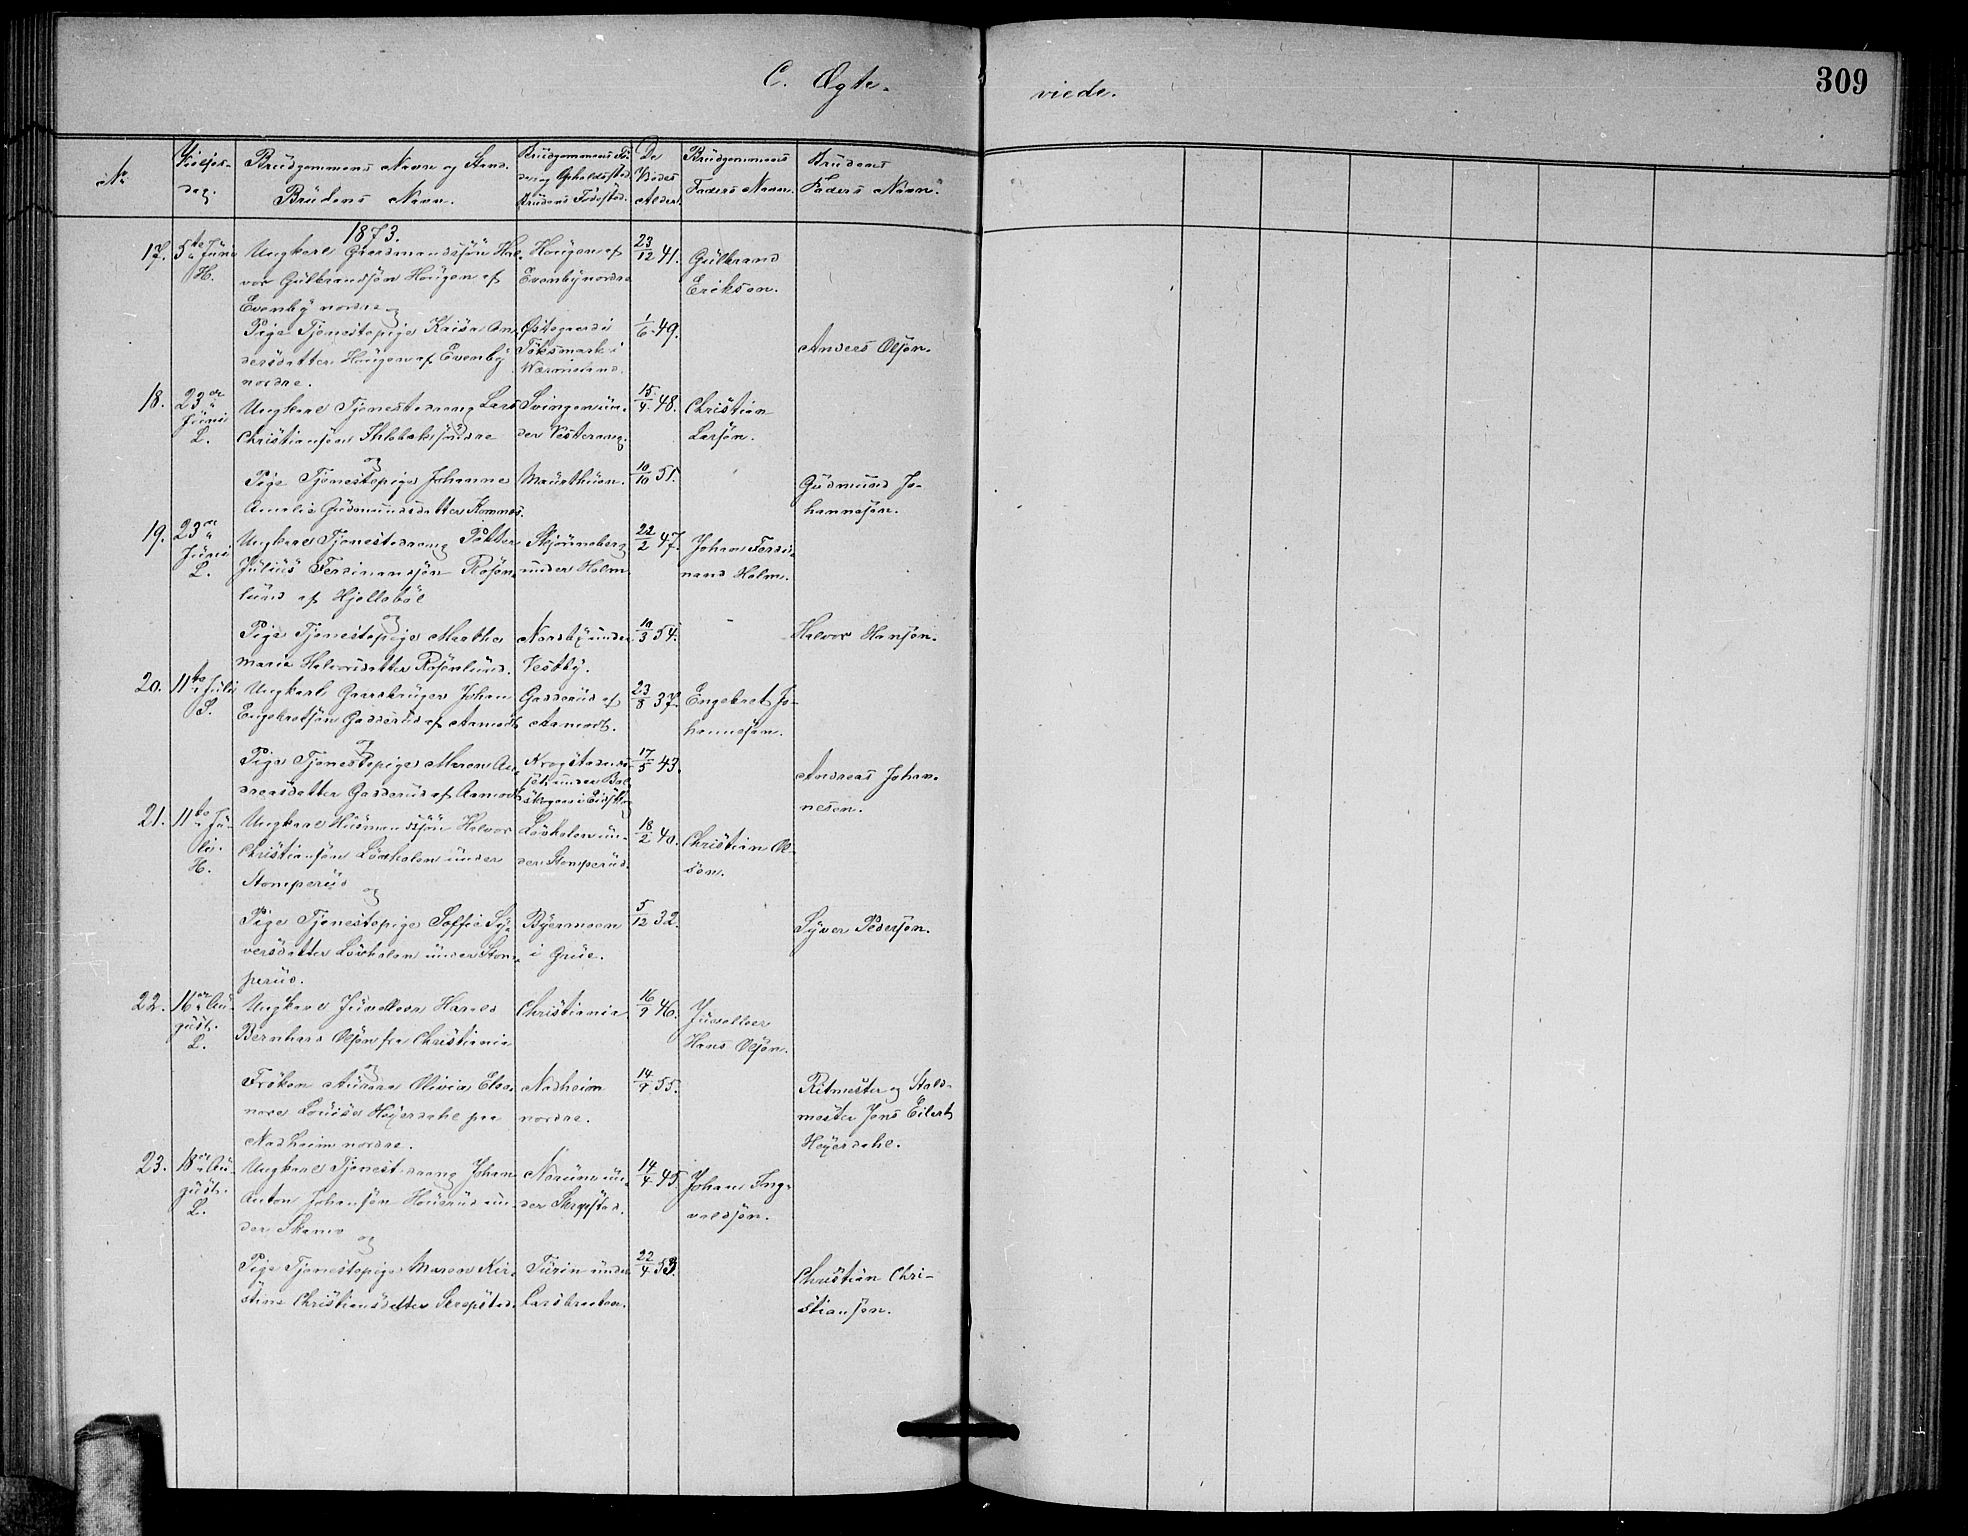 309
C. Ægte- viede.
No.
Vielses-
dag.
Brudgommens Navn og Stand.
Brudens Navn.
Brudgommens Fø-
de og Opholdssted
Brudens Fødested.
De
Viedes
Alder.
Brudgommens
Faders Navn.
Brudens
Faders Navn.
1873.
17. 5te Juni
H.
Ungkarl Gaardmandssøn Hal-
vor Gulbrandsøn Hougen af
Evenby nordre
og
Hougen af
Evenby nordre
23/12 41.
Gulbrand
Erikson.
Pige Tjenestepige Kaisa An-
dersdatter Hougen af Evenby
nordre.
Østegaard i
Töksmark i
Wærmeland.
1/6 49.
Anders Olsøn.
18. 23de
Juni
L.
Ungkarl Tjenestedreng Lars
Christiansøn
og
Svingen un-
der Vestereng.
15/4 48.
Christian
Larsøn.
Pige Tjenestepige Johanne
Amalie Gudmundsdatter Kommes.
10/10 51.
Gudmund Jo-
hannesøn.
19. 23de
Juni
L.
Ungkarl Tjenestedreng Petter
Julius Ferdinandsøn Rosøn-
lund af Hjellebøl
og
Skjønneberg
under Holm
22/2 47.
Johan Ferdi-
nand Holm.
Pige Tjenestepige Marthe
Marie Halvorsdatter Rosønlund.
Nordby under
Vestby.
10/3 54.
Halvor Hansøn.
20. 11te Juli
S.
Ungkarl Gaardbruger Johan
Engebretsøn Gadderud af Aamodt
og
Gadderud af
Aamodt.
23/8 37.
Engebret Jo-
hannesøn.
Pige Tjenestepige Maren An-
dreasdatter Gadderud af Aamodt
17/5 43.
Andreas Johan-
nesen.
21. 11te Ju-
li.
H.
Ungkarl Husmandssøn Halvor
Christiansøn Lövholen under
Stomperud
og
Lövholen un-
der Stomperud.
18/2 40.
Christian Ol-
søn.
Pige Tjenestepige Soffie Sy-
versdatter Lövholen under Stom-
perud.
Byermoen
i Grue.
5/12 32.
Syver Pedersøn.
22. 16de Au-
gust.
L.
Ungkarl Juveleer Harald
Bernhard Olsøn fra Christiania
og
Christiania
16/9 46.
Juveleer
Hans Olsøn.
Frøken Aurora Olivia Eleo-
nore Louise Heyerdahl paa
Nadheim nordre.
Nadheim
nordre.
14/9 55.
Ritmester og Stald-
mester Jens Eilert
Heyerdahl.
23. 18de Au-
gust.
L.
Ungkarl Tjenestdreng Johan
Anton Johansøn Houerud un-
der Skamo
og
Norum un-
der Skrepstad.
14/4 45.
Johan Ing-
valdsøn.
Pige Tjenestepige Maren Kir-
stine Christiansdatter Skrepstad.
Turin under
Larsbraaten.
22/4 53.
Christian Chri-
stiansøn.